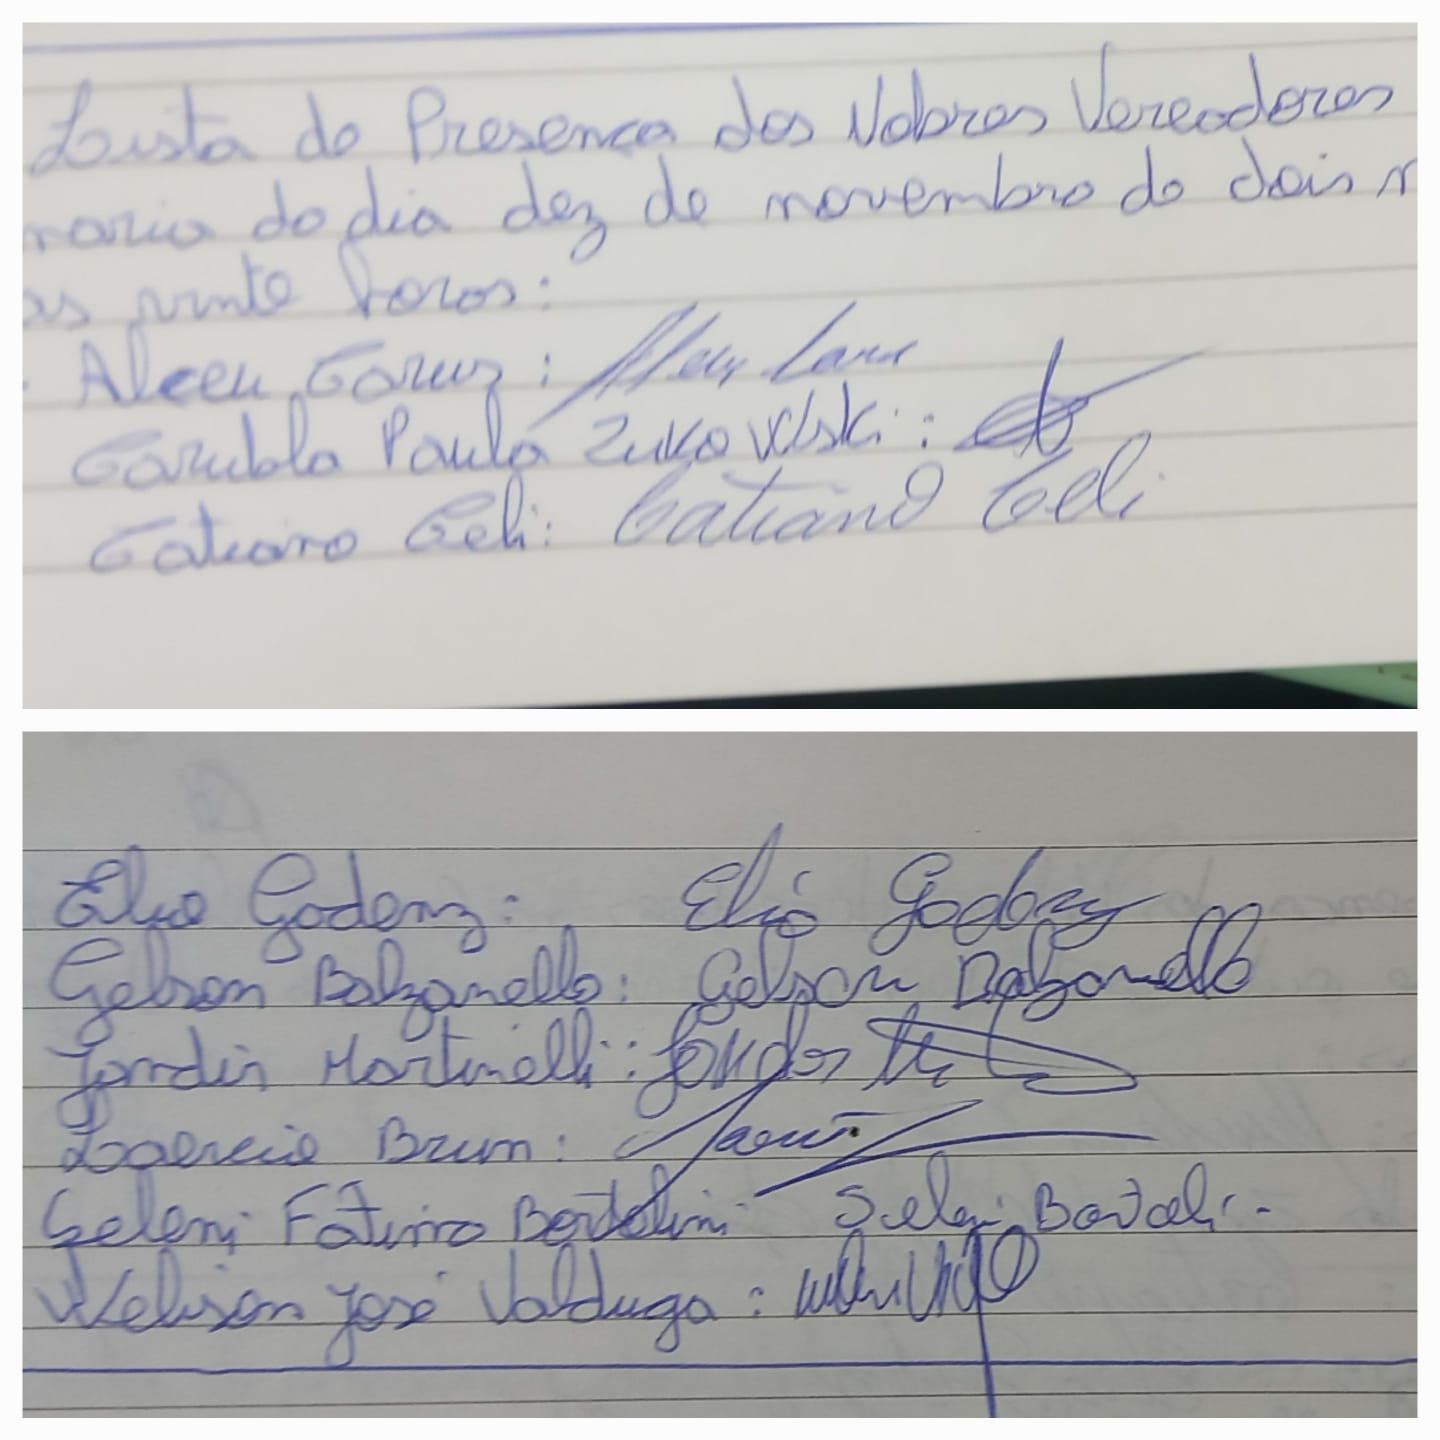 Lista de Presença dos Nobres Vereadores
naria do dia dez de novembro de dois m
as vinte horas:
Alceu Caruz :
Carubla Paula Zukovelski :
Catiano Celi: Catiano Celi
Elio Godenz: Elio Godenz
Gelson Balzanello: Gelson Balzanello
Jondir Martinelli:
Laercio Brum:
Seleni Fátima Bortolini Seleni Bortoli
Welison José Valduga :